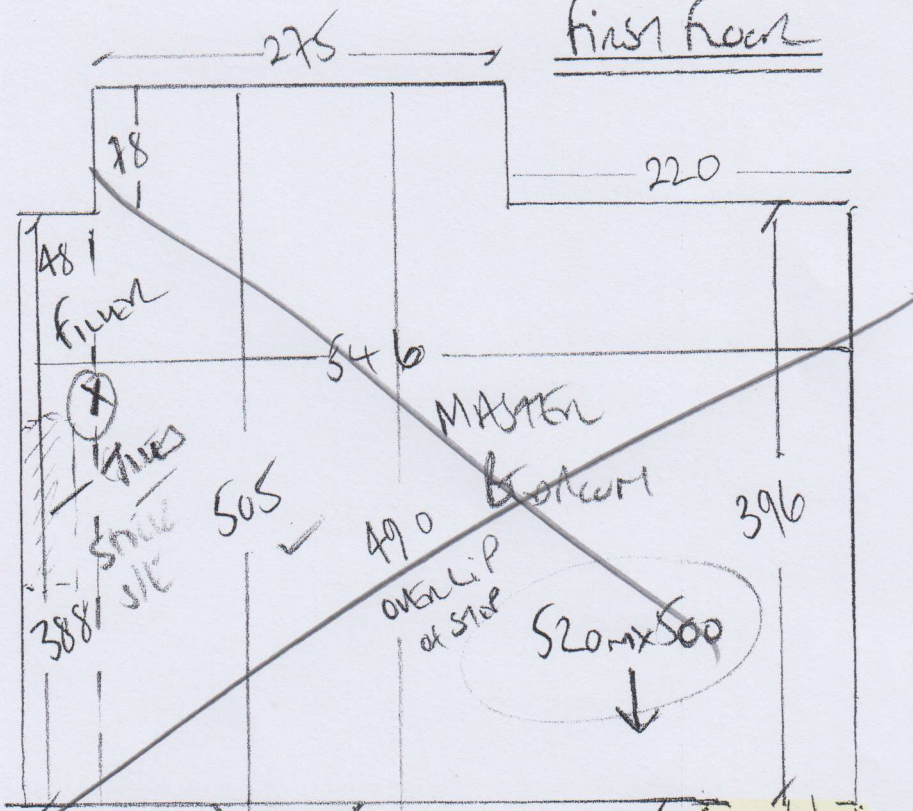 First Floor
275
78
220
48
Filler
546
X
MASTER
Bedroom
Tiles
505
490
396
OVER LIP
OF STEP
388
520mx500